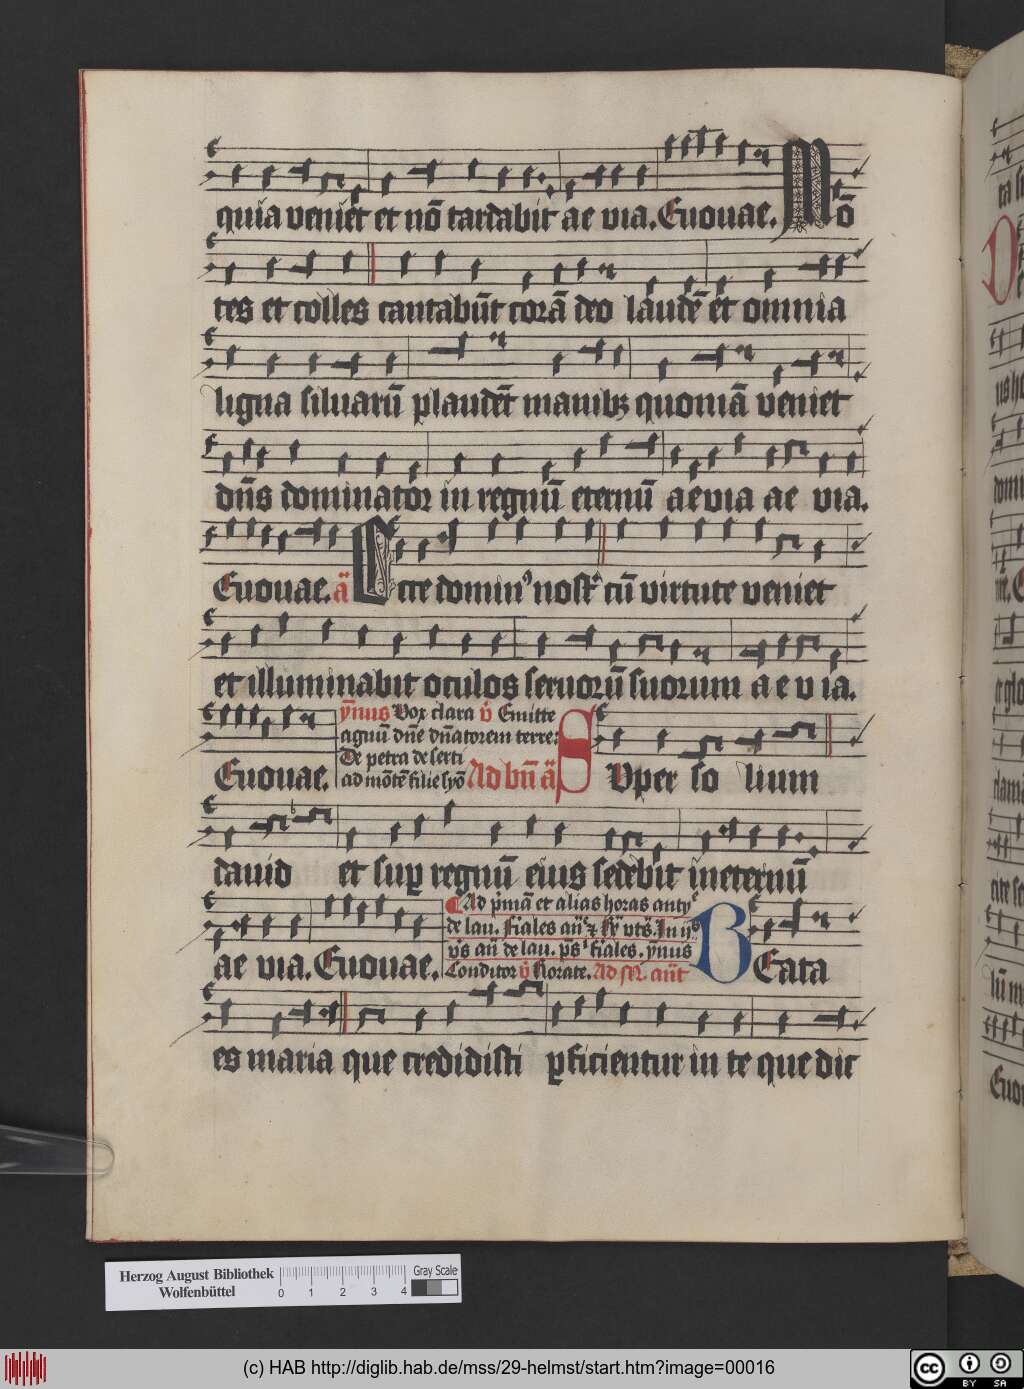 quia veniēt et nō tardabit ae via. Euouae. Mō
tes et colles cantabūt corā deo laudē et omnia
ligna siluarū plaudēt manibꝫ quoniā veniet
dn̄s dominator in regnū eternū aevia ae via.
Euouae. ā Ecce dominꝰ nosṫ cū virtute veniet
et illuminabit oculos seruorū suorum a e v ia.
ym̄nus Vox clara v̇ Emitte
agnū dn̄e dn̄atorem terre:
De petra deserti
ad mōtē filie syō Ad bn̄ ā
Euouae. Super so lium
dauid et suꝑ regnū eius sedebit ineternū
Ad ṗmā et alias horas anty
de lau. ffiales an̄ ꝛ ꝶ vts̄. In ij
vṡ an̄ de lau. ps̄ ffiales. ymnus
Conditor v̇ Rorate. Ad an̄t
ae via. Euouae. BEata
es maria que credidisti ꝑficientur in te que dic
Herzog August Bibliothek
Wolfenbüttel
0 1 2 3 4
Gray Scale
(c) HAB http://diglib.hab.de/mss/29-helmst/start.htm?image=00016
cc BY SA